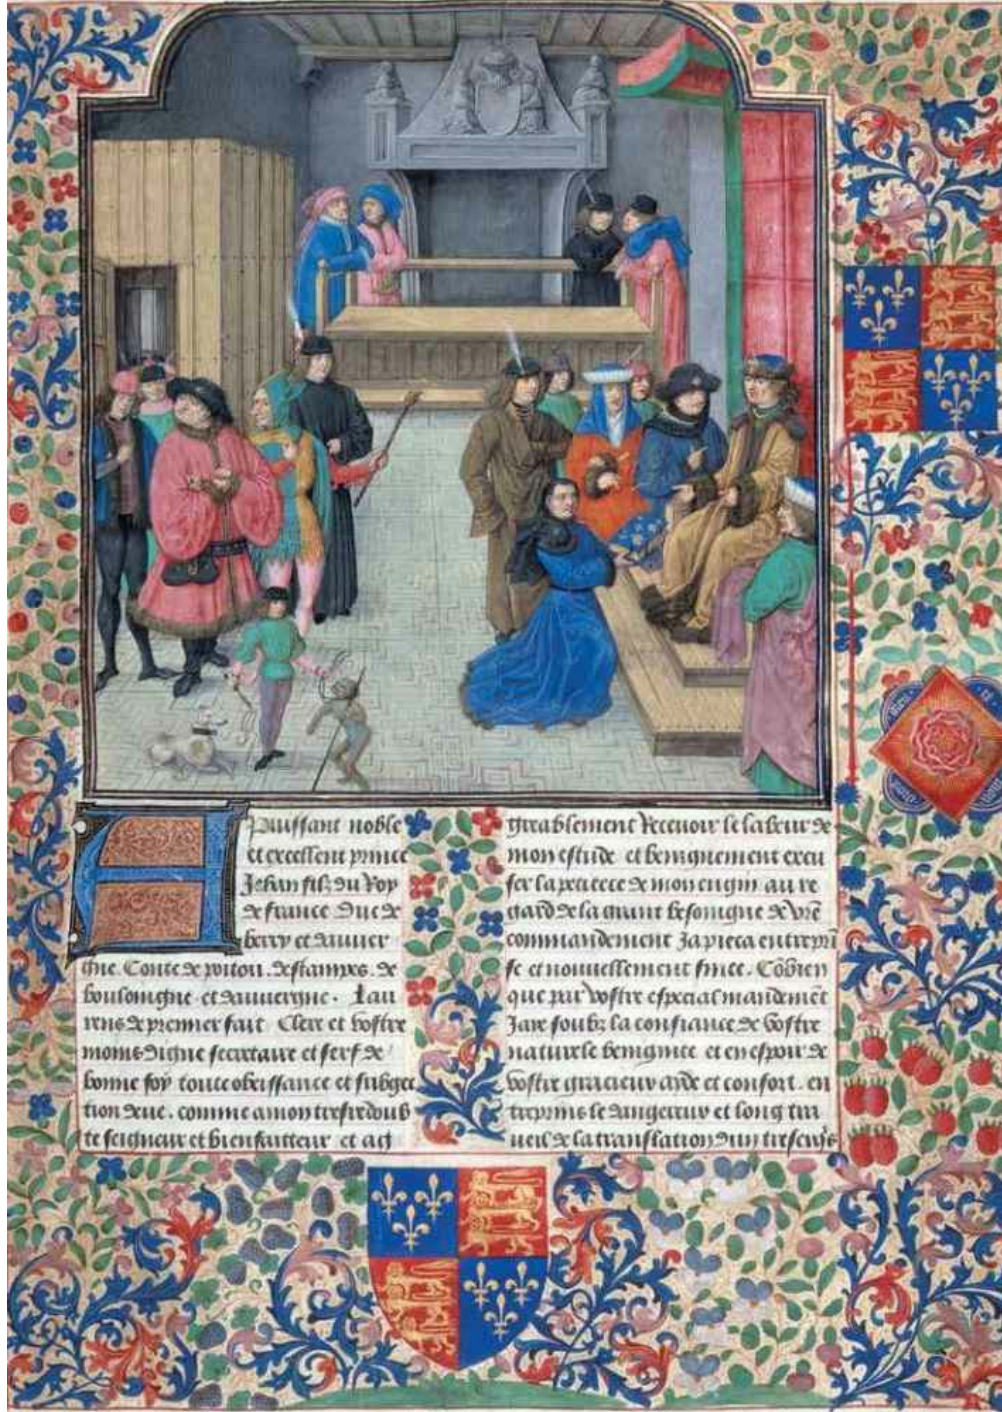 A
Puissant noble
et excellent prince
Jehan filz du Roy
de france Duc de
berry et dauver
gne. Conte de poitou. destampes. de
bouloingne. et dauvergne. Lau
rens de premier fait Clerc et vostre
moins digne secretaire et serf de
bonne foy toute obeissance et subgec
tion deue. comme a mon tresredoub
te seigneur et bienfaitteur et a
greablement Recevoir le labeur de
mon estude et benignement excu
ser la petitece de mon engin au re
gard de la grant besoingne de vre
commandement Ja pieca entrepri
se et nouvellement finee. Cobien
que par vostre especial mandemet
Jaye soubz la confiance de vostre
naturele benignite et en espoir de
vostre gracieux ayde et confort. en
treprins le dangereux et long tra
ueil de la translation dun